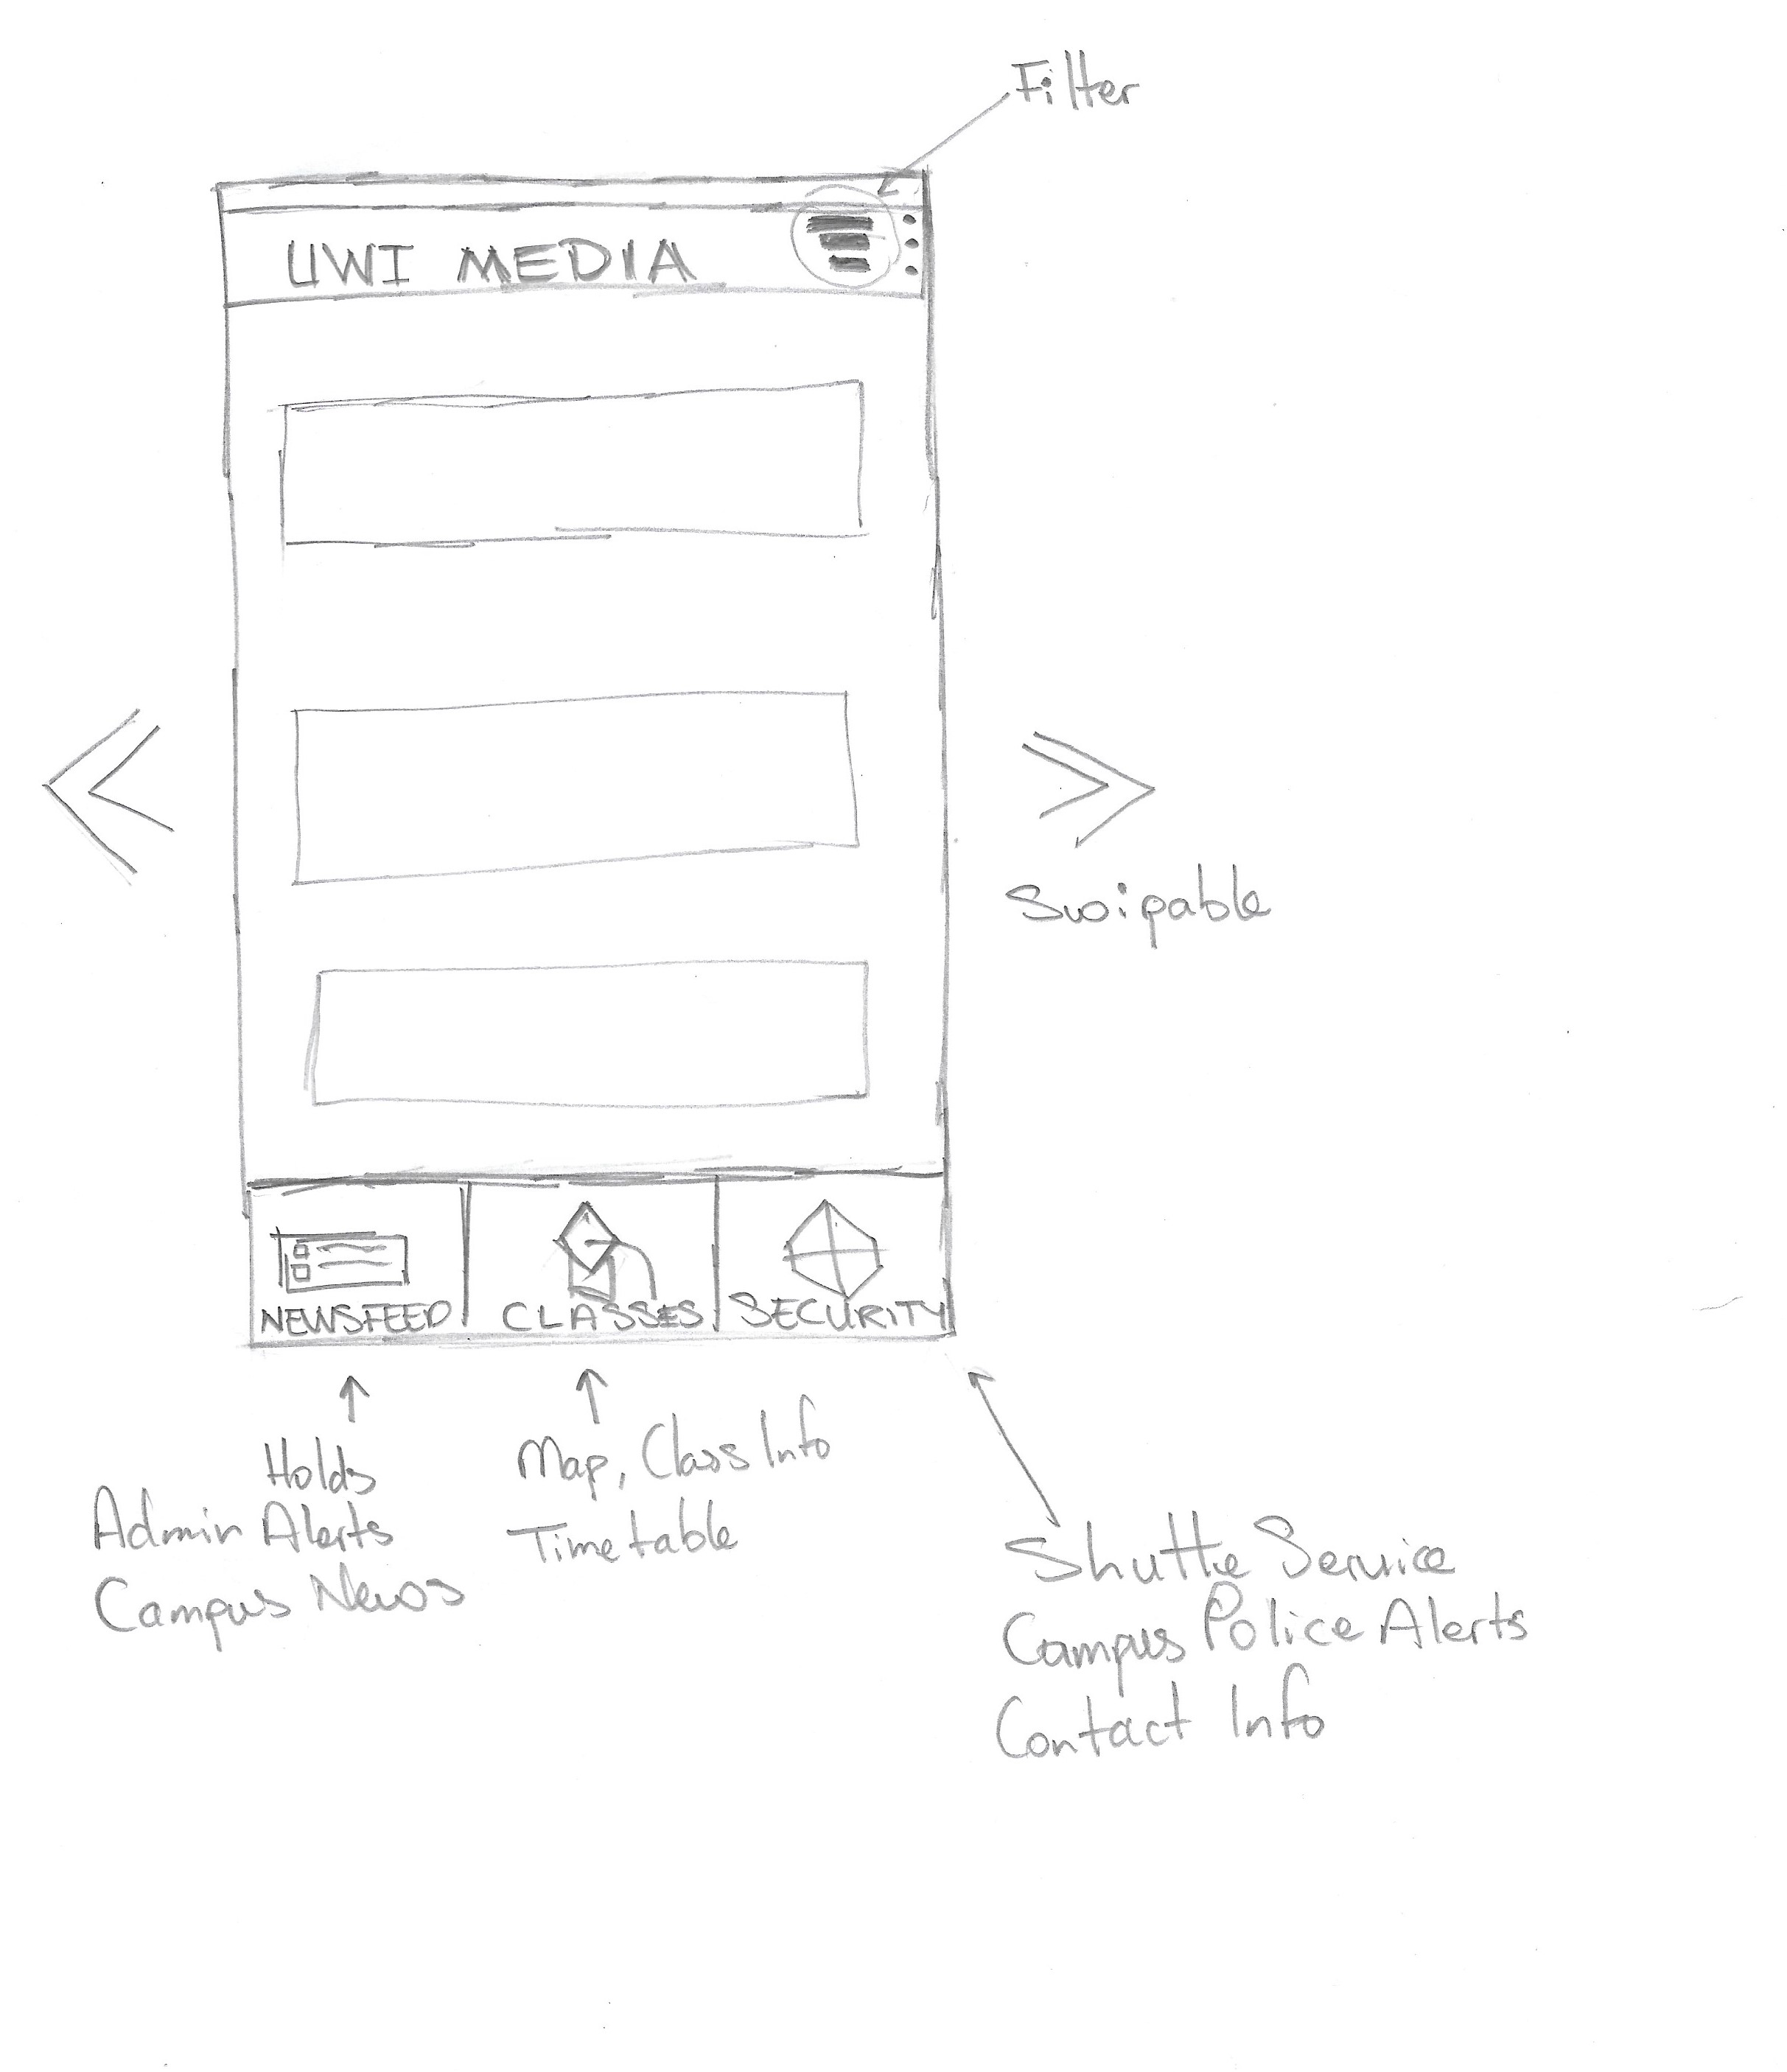 Filter
UWI MEDIA
Swipable
NEWSFEED CLASSES SECURITY
Holds
Admin Alerts
Campus News
Map, Class Info
Timetable
Shuttle Service
Campus Police Alerts
Contact Info